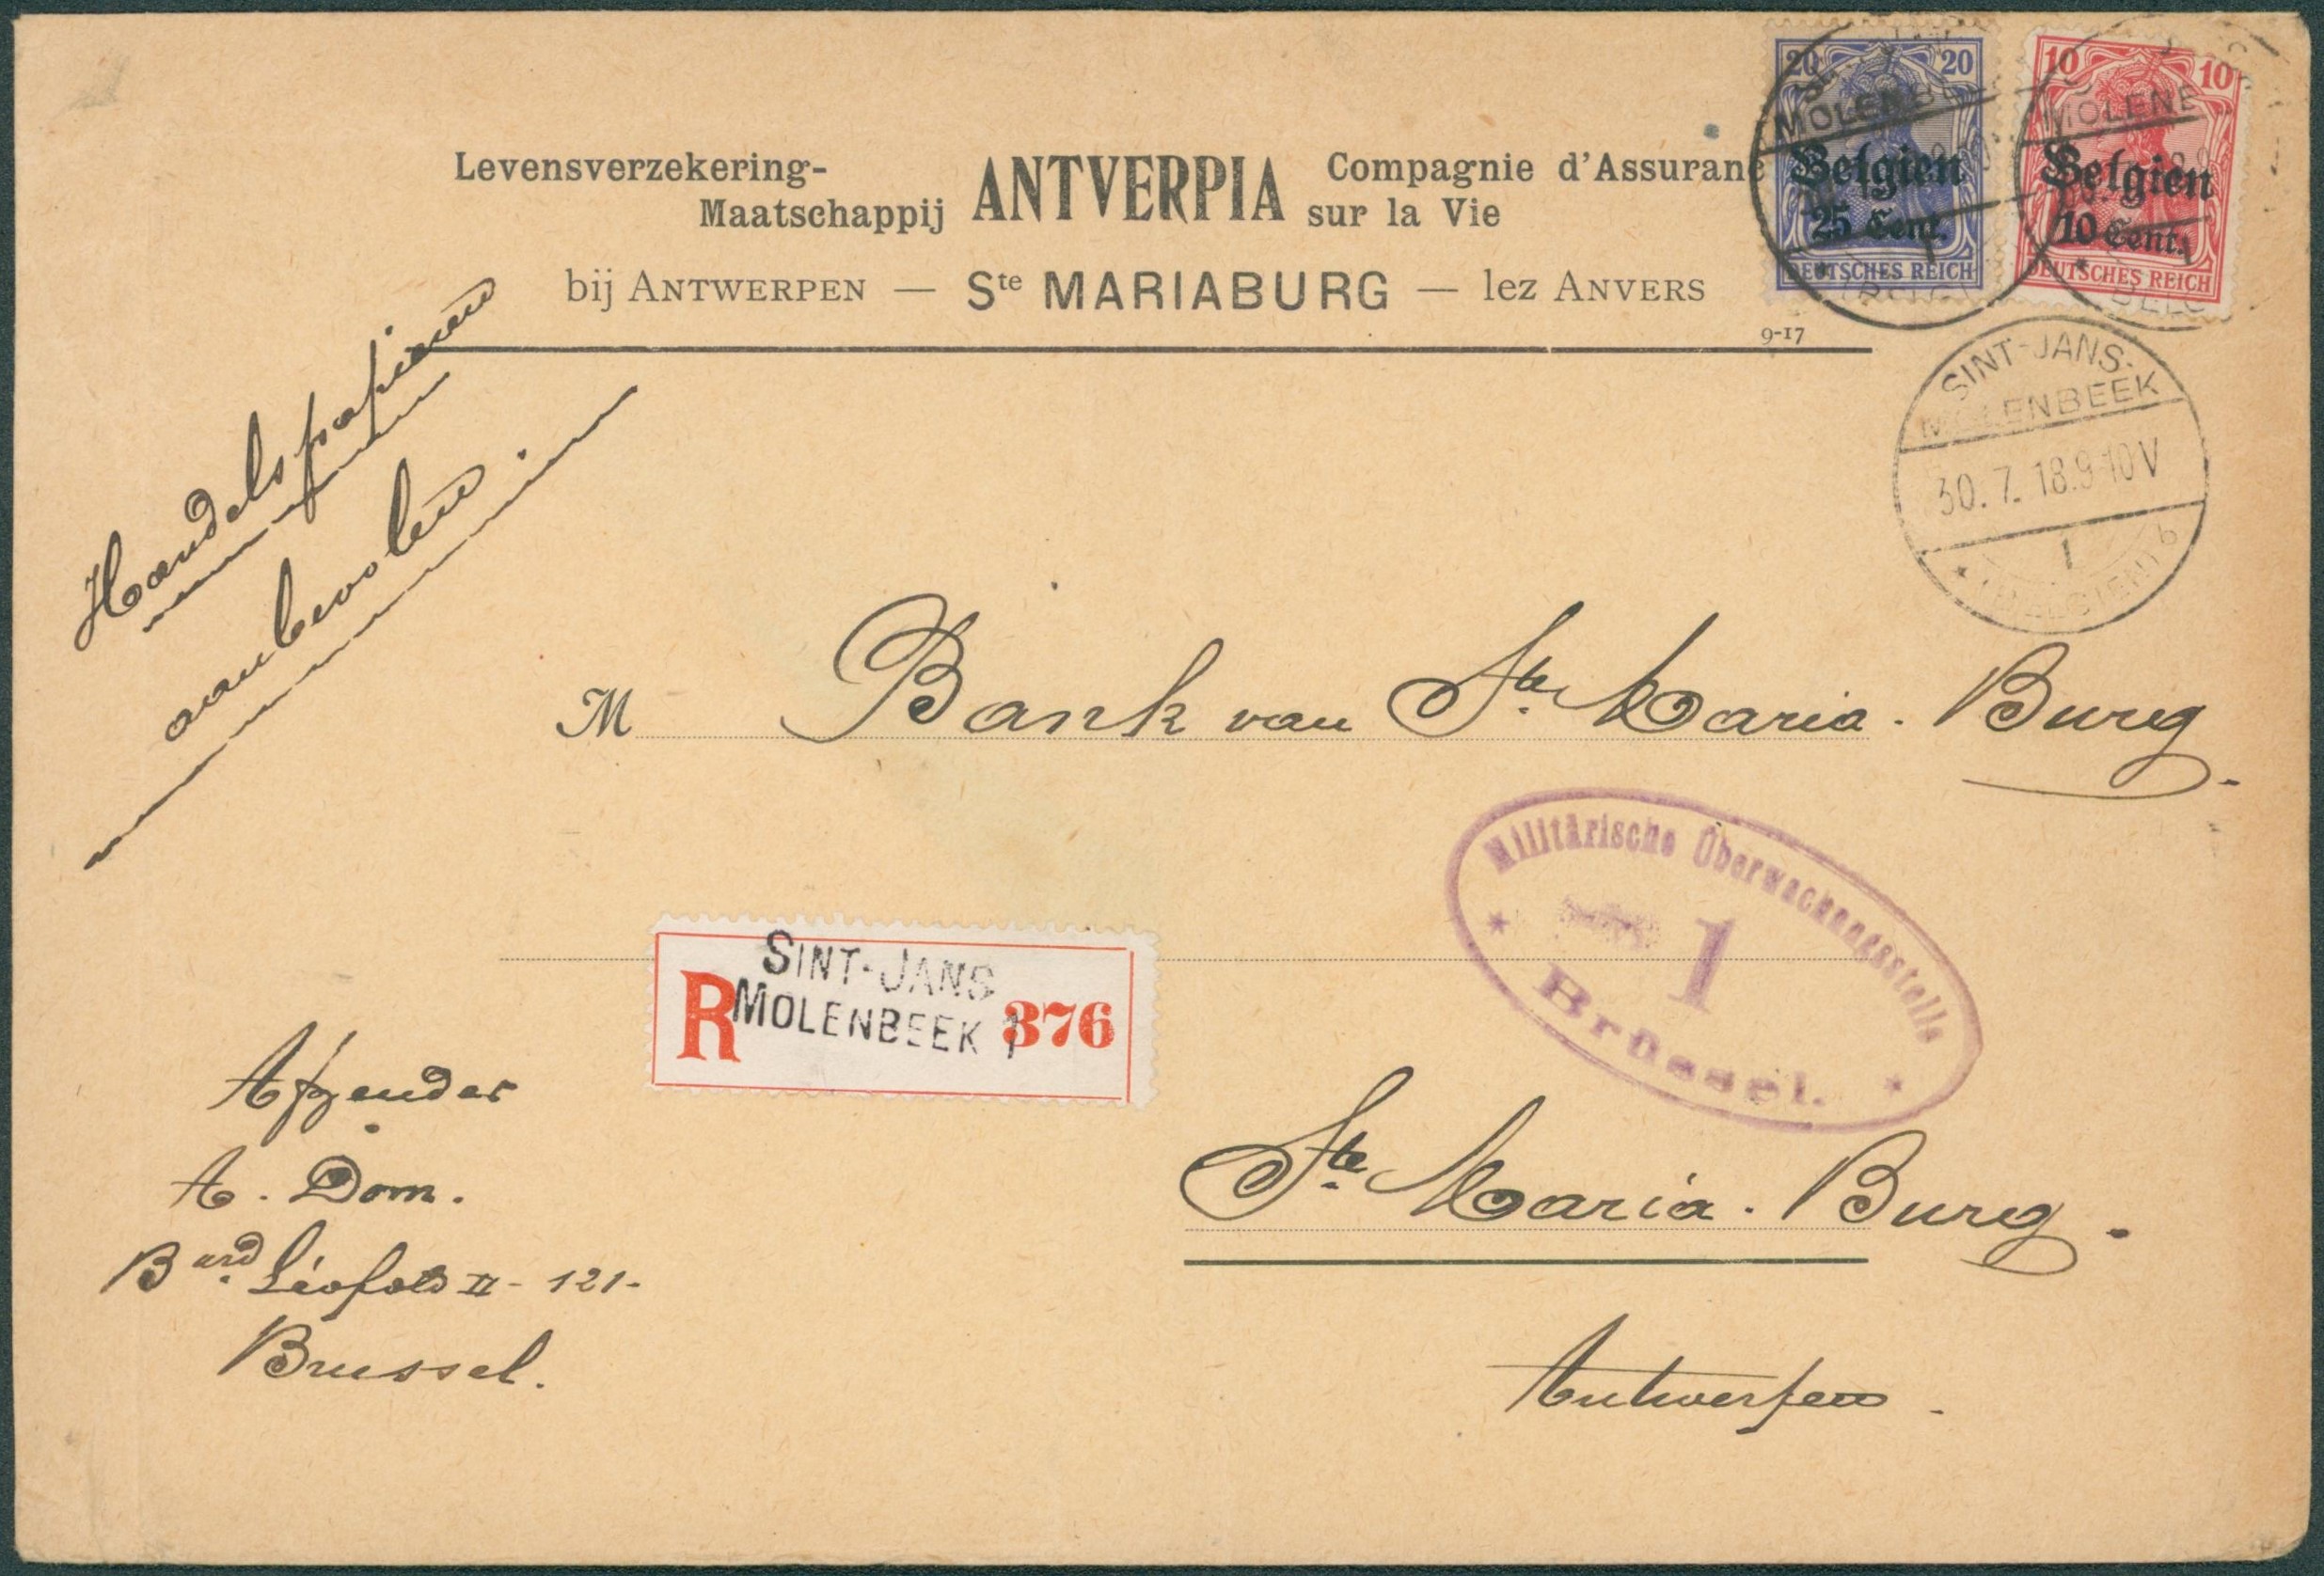 Levensverzekering-
Maatschappij
ANTVERPIA
Compagnie d'Assuranc
sur la Vie
bij ANTWERPEN — Ste MARIABURG — lez ANVERS
9-17
20 20
MOLENBE
Belgien
25 Cent.
DEUTSCHES REICH
10 10
MOLENB
Belgien
10 Cent.
DEUTSCHES REICH
SINT-JANS-
MOLENBEEK
30. 7. 18. 9-10V
1
b
Handelspapieren
aanbevolen.
M Bank van Ste. Maria. Burg.
Militärische Überwachungsstelle
1
Brüssel.
R
SINT-JANS
MOLENBEEK 1
376
Afzender
A. Dom.
Bard. Léopold II - 121-
Brussel.
Ste. Maria. Burg.
Antwerpen.